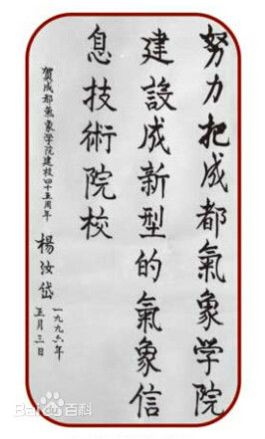 努力把成都氣象学院
建設成新型的氣象信
息技術院校
賀成都氣象学院建校四十五周年
楊汝岱
一九九六年
五月三日
Baidu百科